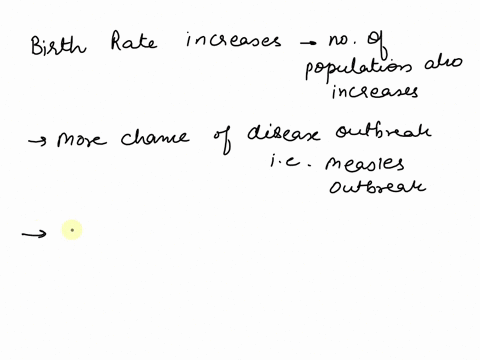 Birth Rate increases → no. of
population also
increases
→ More chance of disease outbreak
i.e. Measles
outbreak
→